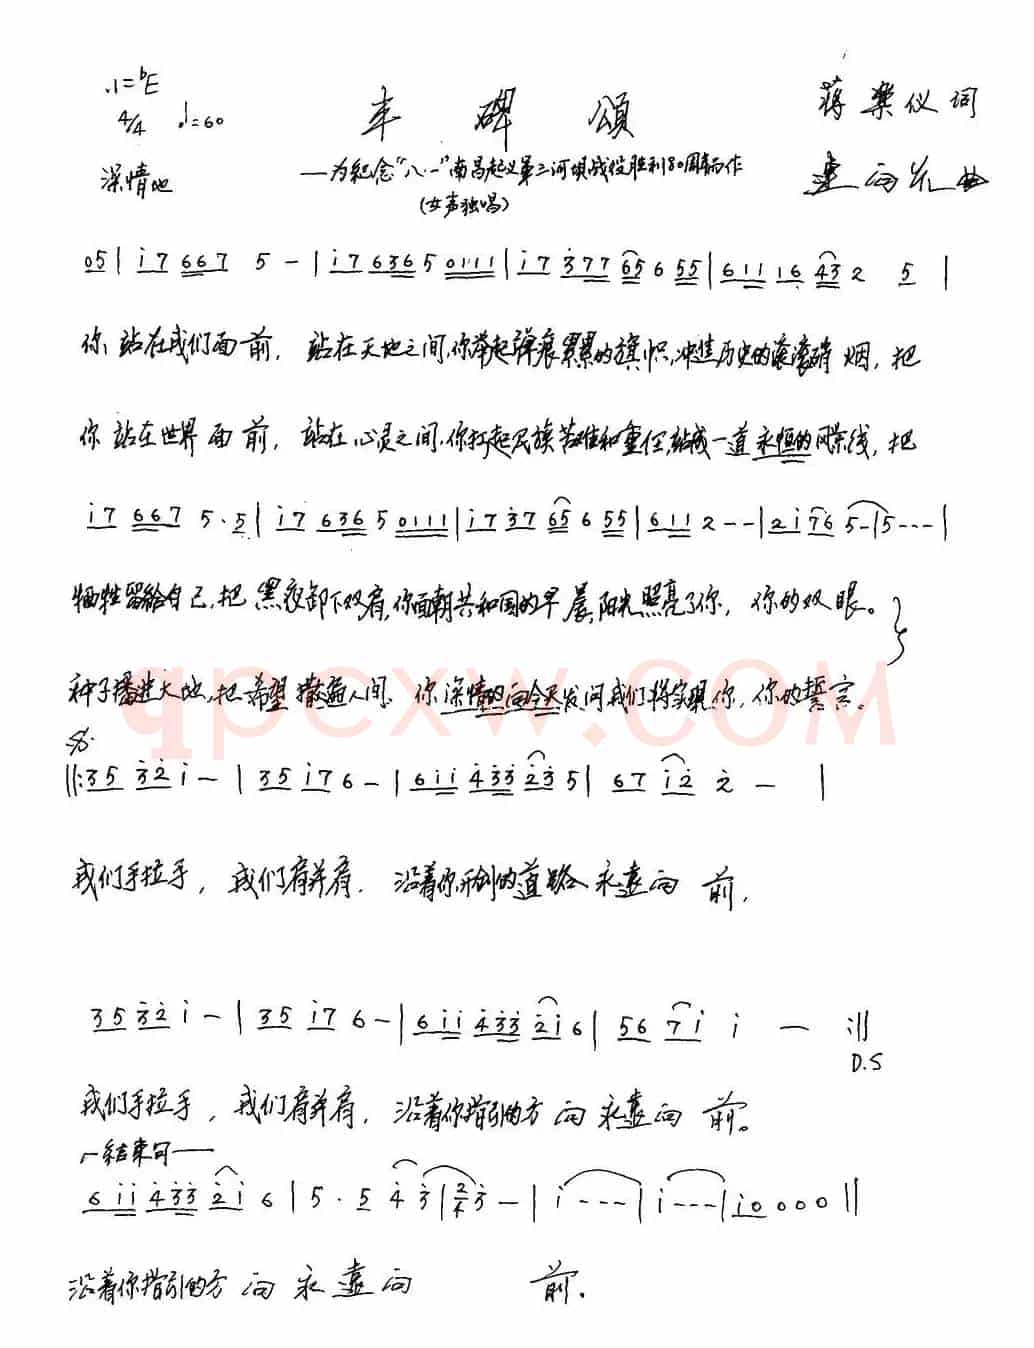 1=♭E
4/4 ♩=60
深情地
丰碑颂
蒋乐仪词
曲
—为纪念“八·一”南昌起义第三河坝战役胜利80周年而作
(女声独唱)
05| i7 667 5 - | i7 6365 0111 | i7 377 65 6 55 | 611 16 43 2 5 |
你站在我们面前，站在天地之间，你举起弹痕累累的旗帜，冲进历史的滚滚硝烟，把
你站在世界面前，站在心灵之间，你扛起民族苦难和重任，站成一道永恒的风景线，把
i7 667 5·5 | i7 636 5 0111 | i7 37 65 6 55 | 611 2 -- | 2i 76 5- | 5--- |
牺牲留给自己，把黑夜卸下双肩，你面朝共和国的早晨，阳光照亮了你，你的双眼。
种子播进大地，把希望撒遍人间，你深情的向今天发问我们将实现你，你的誓言。
qpcxw.com
||:35 32 i - | 35 i7 6 - | 6ii 433 23 5 | 67 i2 2 - |
我们手拉手，我们肩并肩，沿着你开创的道路永远向前，
35 32 i - | 35 i7 6 - | 6ii 433 2i 6 | 56 7i i - :||
D.S
我们手拉手，我们肩并肩，沿着你指引的方向永远向前。
结束句
6ii 433 2i 6 | 5·5 4 3 | 2/4 3 - | i --- | i --- | i0000 ||
沿着你指引的方向永远向前．